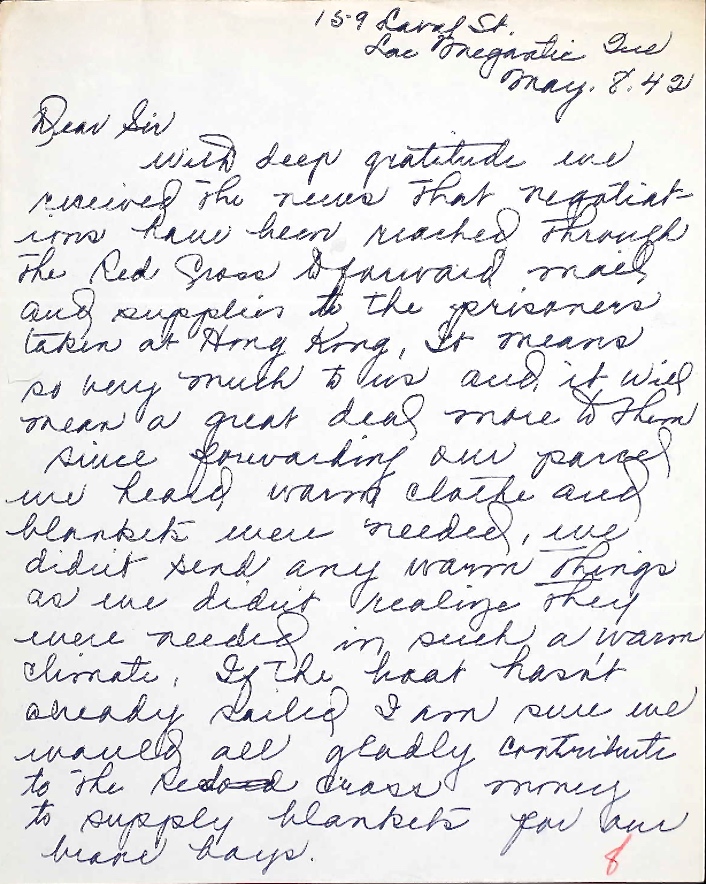 159 Laval St.
Lac Megantic Que
May. 8. 42
Dear Sir
with deep gratitude we
received the news that negotiat-
ions have been reached through
the Red Cross to forward mail
and supplies to the prisoners
taken at Hong Kong, It means
so very much to us and it will
mean a great deal more to them
since forwarding our parcel
we heard warm clothe and
blankets were needed, we
didn't send any warm things
as we didn't realize they
were needed in such a warm
climate. If the boat hasn't
already sailed I am sure we
would all gladly contribute
to the Red Cross money
to supply blankets for our
brave boys.
8